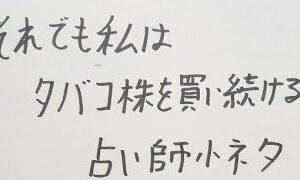 それでも私は
タバコ株を買い続ける
占い師小ネタ